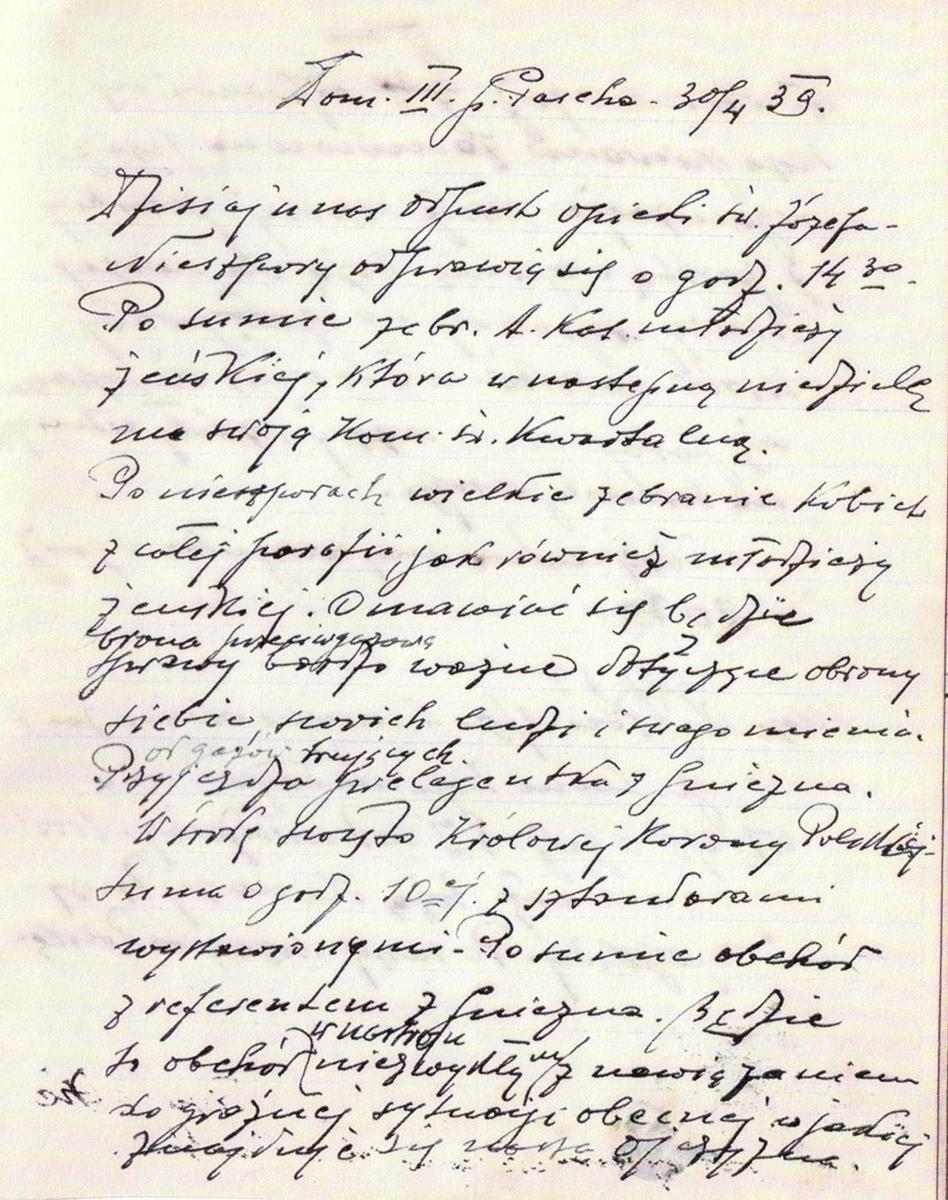 Dom. III. p. Pascha - 30/4 39.
Dzisiaj u nas odpust opieki św. Józefa -
Nieszpory odprawią się o godz. 14 30 -
Po sumie zebr. A. Kat. młodzieży
żeńskiej, która w następną niedzielę
ma swoją Kom. św. Kwartalną.
Po nieszporach wielkie zebranie Kobiet
z całej parafii, jak również młodzieży
żeńskiej. Omawiać się będzie
brona przeciwgazowa
sprawy bardzo ważne dotyczące obrony
siebie, swoich ludzi i swego mienia.
od gazów trujących.
Przyjeżdża pielęgentka z Gniezna.
W środę święto Królowej Korony Polskiej -
suma o godz. 10 ej. z sztandarami
wystawionymi - Po sumie obchód
z referentem z Gniezna. Będzie
w nastroju
to obchód niezwykły z nawiązaniem
do groźnej sytuacji obecnej w jakiej
znajduje się nasza Ojczyzna.